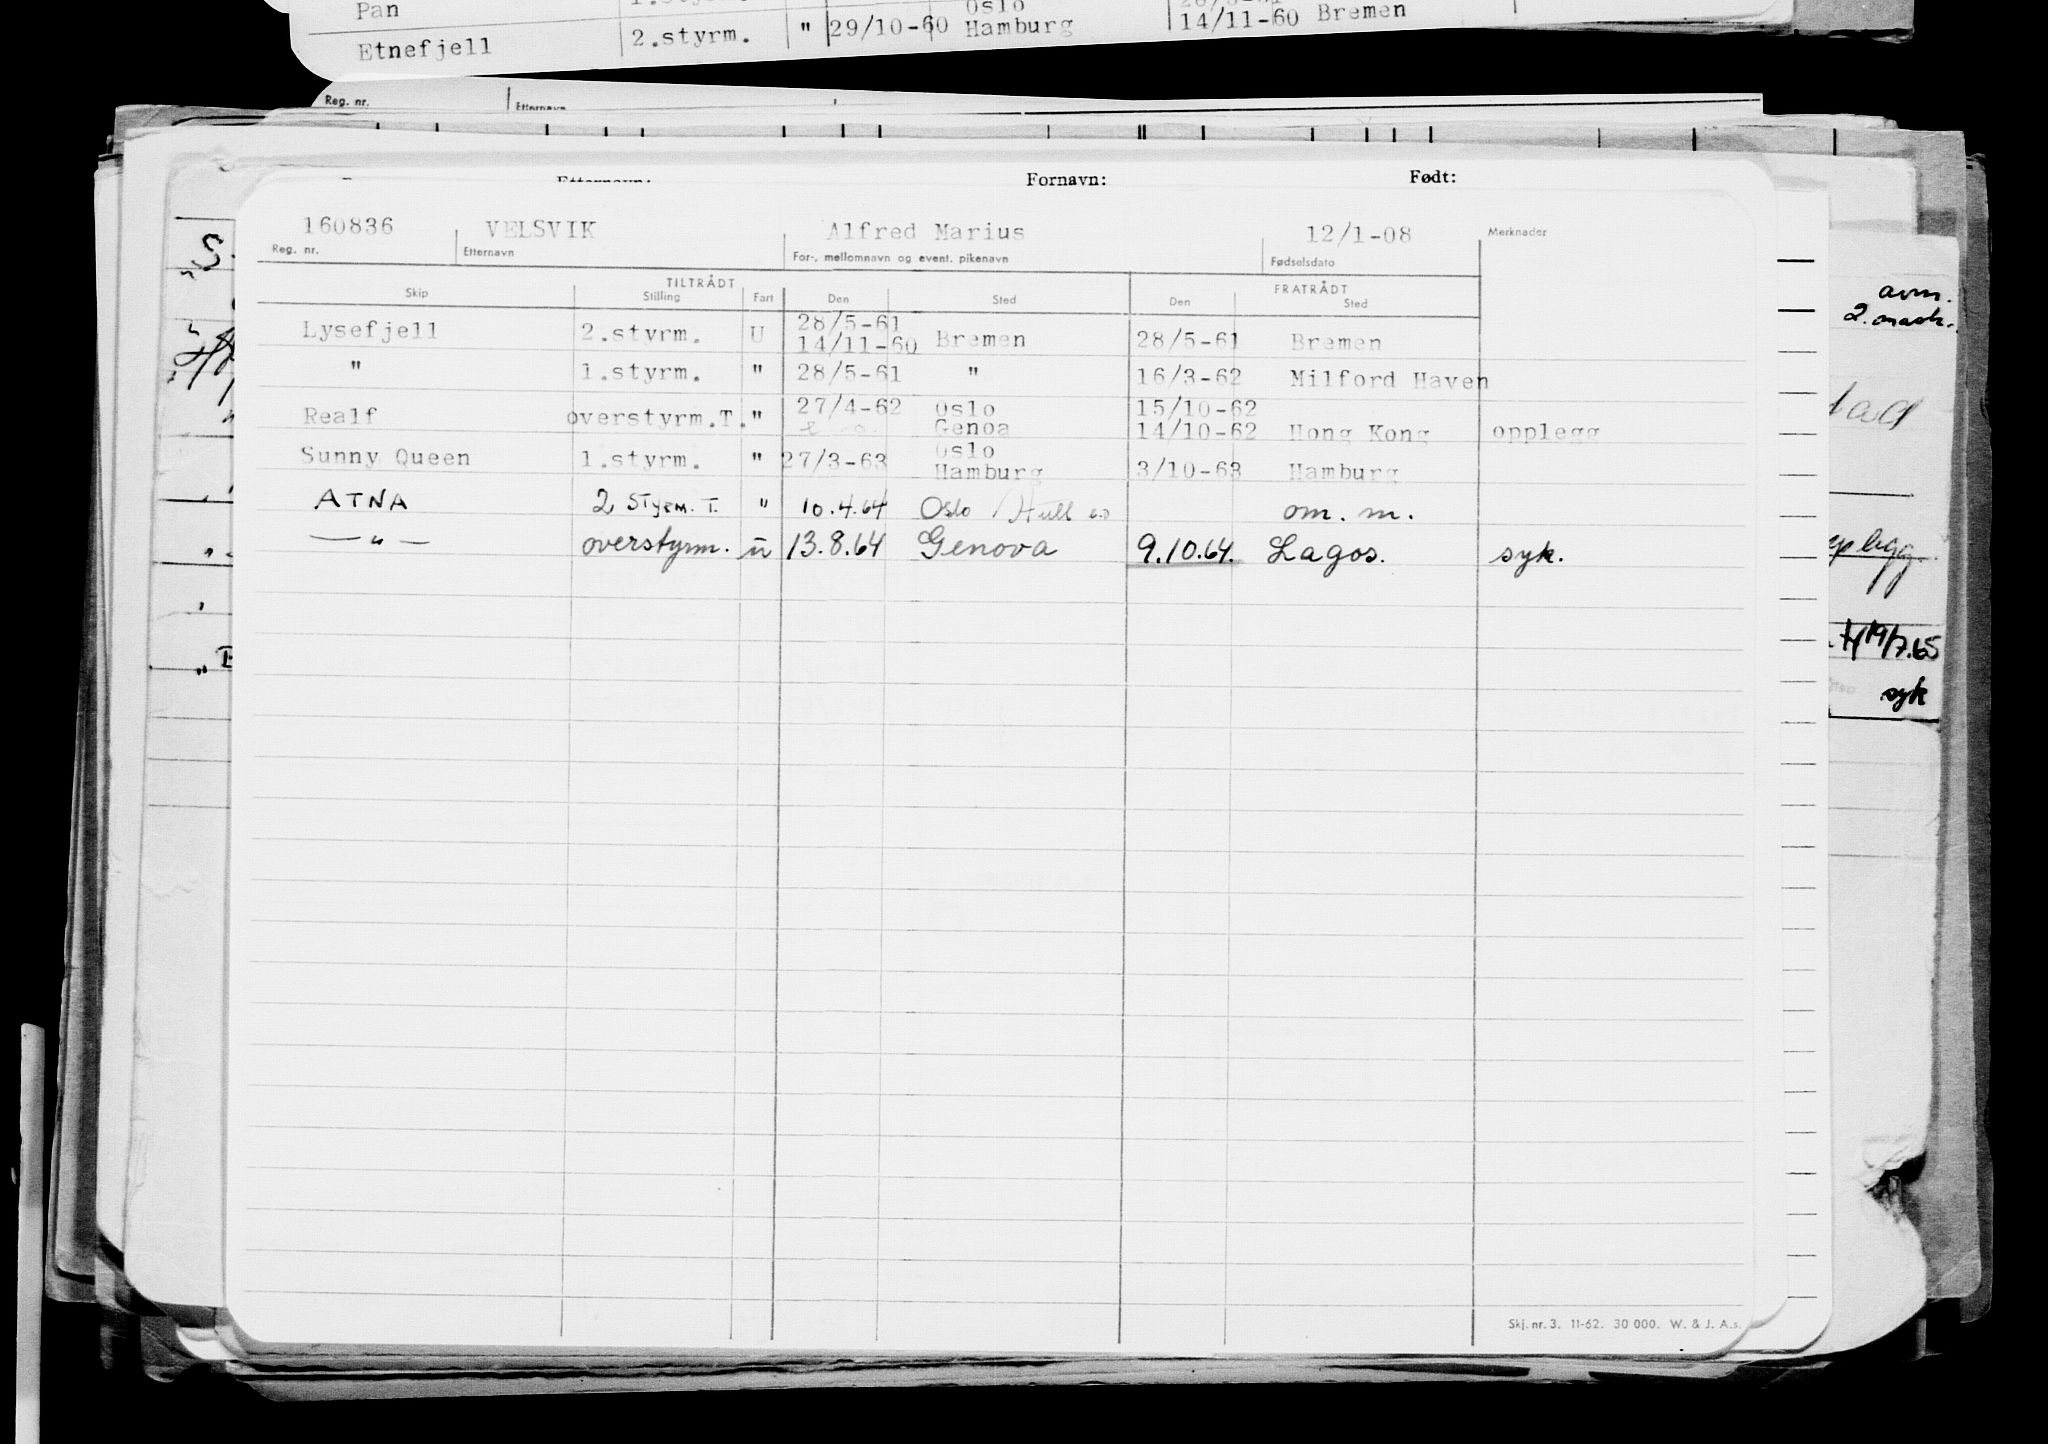 Pan
Oslo
Etnefjell 2.styrm. " 29/10-60 Hamburg 14/11-60 Bremen
Reg. nr. Etternavn
Etternavn: Fornavn: Født:
160836 VELSVIK Alfred Marius 12/1-08 Merknader
Reg. nr. Etternavn For-, mellomnavn og event. pikenavn Fødselsdato
TILTRÅDT FRATRÅDT
Skip Stilling Fart Den Sted Den Sted
28/5-61
Lysefjell 2.styrm. U 14/11-60 Bremen 28/5-61 Bremen
" 1.styrm. " 28/5-61 " 16/3-62 Milford Haven
27/4-62 Oslo 15/10-62
Realf overstyrm.T. " Genoa 14/10-62 Hong Kong opplegg
Oslo
Sunny Queen 1.styrm. " 27/3-63 Hamburg 3/10-63 Hamburg
ATNA 2 Styrm. T. " 10.4.64 Oslo / Hull om. m.
— " — overstyrm. u 13.8.64 Genova 9.10.64. Lagos. syk.
avm.
2. mask.
19/7.65
syk
Skj. nr. 3. 11-62. 30 000. W. & J. A.s.